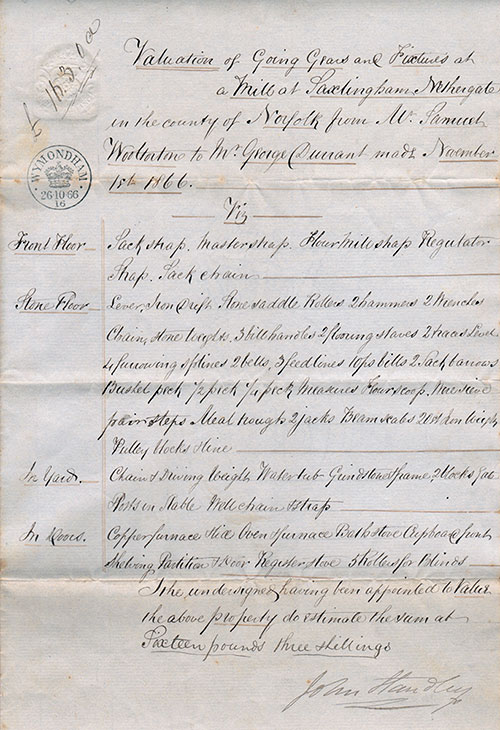 £ 16.3.0
Valuation of Going Gears and Fixtures at
a Mill at Saxlingham Nethergate
in the county of Norfolk from Mr. Samuel
Woolterton to Mr. George Durrant made November
1st 1866.
WYMONDHAM
26·10·66
16
Viz
Front Floor Sack strap. Master strap. Flour Mill strap Regulator
Strap. Sack chain
Stone Floor Lever, Iron Stone saddle Rollers 2 hammers 2 Wrenches
Chain, stone weights, 3 bill handles 2 flooring staves 2 traces Level
4 furrowing splines 2 bells, 3 feed lines 10 ps bills 2 Sack barrows
Bushel peck ½ peck ¼ peck Measures Flour scoop. Wire sieve
pair steps Meal trough 2 jacks Beam scales Iron Weights
Pulley blocks & line
In Yard. Chain & Driving Weights Water tub Grindstone & frame, 2 blocks
Posts in stable Well chain & strap
In Doors. Copper furnace Oven & furnace Bath stove Cupboard front
Shelving Partition & Door Register stove 5 Rollers for Blinds
I the undersigned having been appointed to Value
the above property do estimate the sum at
Sixteen pounds three shillings
John Standley